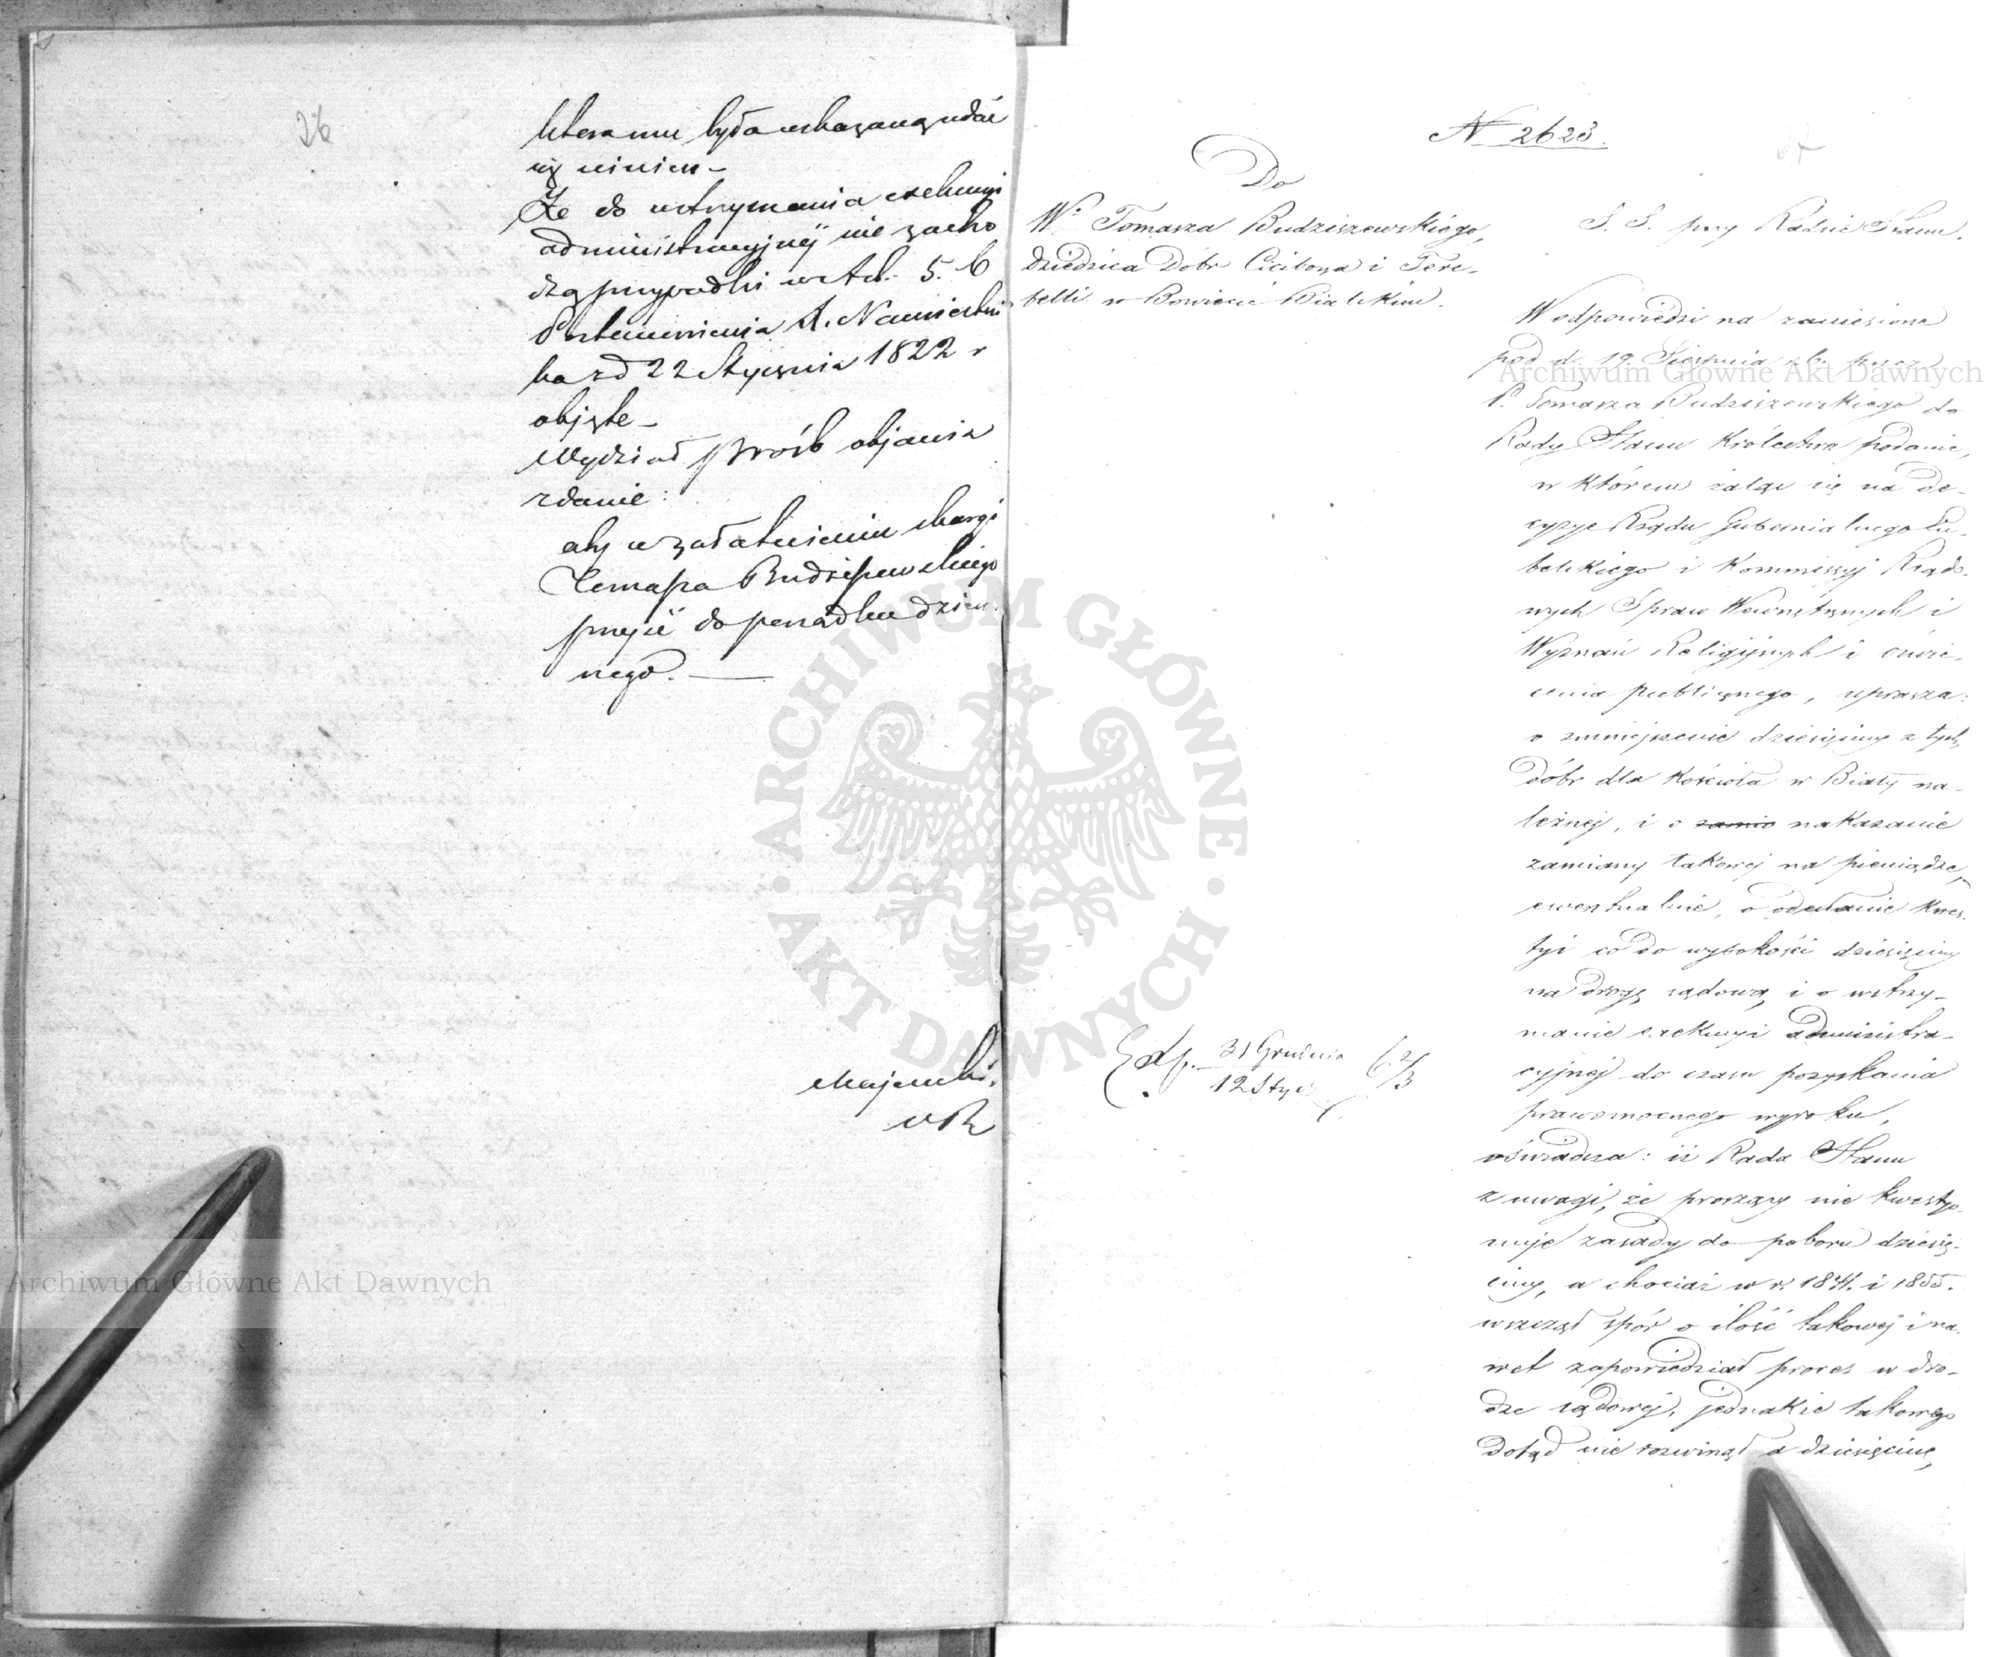 26
która mu była wskazaną udać
się winien –
Że do wstrzymania exekucyi
administracyjnej nie zacho
dzą przypadki w Art. 5. b
Postanowienia X. Namiestni
ka z d 22 Stycznia 1822 r
objęte –
Wydział Próśb objawia
zdanie:
aby w załatwieniu skargi
Tomasza Budziszewskiego
przejść do porządku dzien
nego. —
Majewski.
N 2623.
Do
W. Tomasza Budziszewskiego,
dziedzica Dóbr Cicibora i Tere-
belli w Powiecie Bialskim.
S. S. przy Radzie Stanu.
W odpowiedzi na zaniesione
pod d. 19 Sierpnia r. b. przez
P. Tomasza Budziszewskiego do
Rady Stanu Królestwa podanie,
w którem żaląc się na de-
cyzye Rządu Gubernialnego Lu-
belskiego i Kommissyj Rządo-
wych Spraw Wewnętrznych i
Wyznań Religijnych i Oświe-
cenia publicznego, uprasza:
o zmniejszenie dziesięciny z tych
dóbr dla Kościoła w Biały na-
leżnej, i o zamia nakazanie
zamiany takowej na pieniądze,
ewentualnie, o odesłanie kwes-
tyi co do wysokości dziesięciny
na drogę sądową, i o wstrzy-
manie exekucyi administra-
cyjnej do czasu pozyskania
prawomocnego wyroku,
oświadcza: iż Rada Stanu
z uwagi, że proszący nie kwestyo-
nuje zasady do poboru dziesię-
ciny, a chociaż w r. 1841. i 1855.
wszczął spór o ilość takowej i na-
wet zapowiedział proces w dro-
dze sądowej, jednakże takowego
dotąd nie rozwinął a dziesięcinę
Exp. 31 Grudnia
12 Stycz
62/3
Archiwum Główne Akt Dawnych
Archiwum Główne Akt Dawnych
ARCHIWUM GŁÓWNE
AKT DAWNYCH